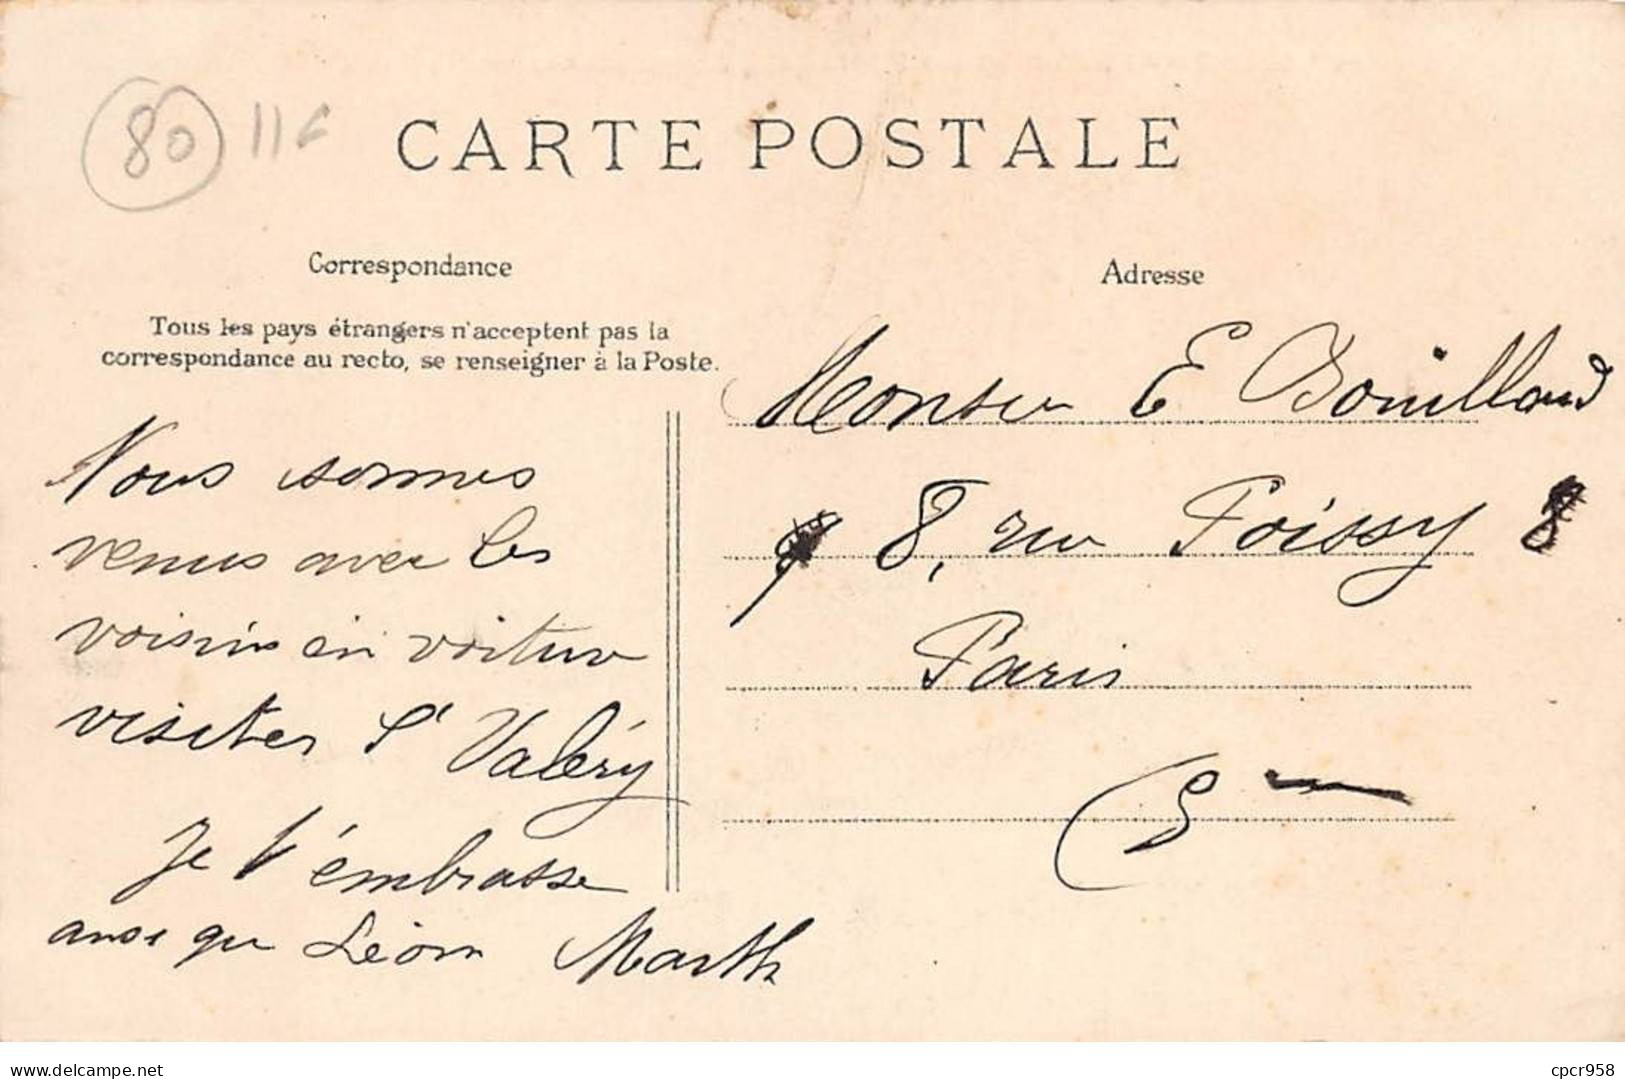 80 11€
CARTE POSTALE
Correspondance
Tous les pays étrangers n'acceptent pas la
correspondance au recto, se renseigner à la Poste.
Nous sommes
venus avec les
voisins en voiture
visiter St Valéry
Je t'embrasse
ainsi que Léon Marthe
Adresse
Monsieur E Bouilland
8, rue Poissy 8
Paris
5
delcampe.net
cpcr958